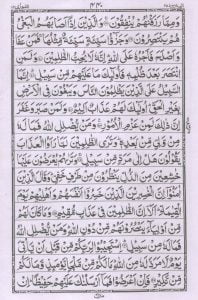 وَمِمَّا رَزَقْنٰهُمْ يُنْفِقُوْنَ وَالَّذِيْنَ اِذَآ اَصَابَهُمُ الْبَغْيُ
هُمْ يَنْتَصِرُوْنَ وَجَزٰٓؤُا سَيِّئَةٍ سَيِّئَةٌ مِّثْلُهَا فَمَنْ عَفَا
وَاَصْلَحَ فَاَجْرُهٗ عَلَى اللّٰهِ اِنَّهٗ لَا يُحِبُّ الظّٰلِمِيْنَ وَلَمَنِ
انْتَصَرَ بَعْدَ ظُلْمِهٖ فَاُولٰٓئِكَ مَا عَلَيْهِمْ مِّنْ سَبِيْلٍ اِنَّمَا
السَّبِيْلُ عَلَى الَّذِيْنَ يَظْلِمُوْنَ النَّاسَ وَيَبْغُوْنَ فِي الْاَرْضِ
بِغَيْرِ الْحَقِّ اُولٰٓئِكَ لَهُمْ عَذَابٌ اَلِيْمٌ وَلَمَنْ صَبَرَ وَغَفَرَ
اِنَّ ذٰلِكَ لَمِنْ عَزْمِ الْاُمُوْرِ وَمَنْ يُّضْلِلِ اللّٰهُ فَمَا لَهٗ
مِنْ وَّلِيٍّ مِّنْ بَعْدِهٖ وَتَرَى الظّٰلِمِيْنَ لَمَّا رَاَوُا الْعَذَابَ
يَقُوْلُوْنَ هَلْ اِلٰى مَرَدٍّ مِّنْ سَبِيْلٍ وَتَرٰىهُمْ يُعْرَضُوْنَ عَلَيْهَا
خٰشِعِيْنَ مِنَ الذُّلِّ يَنْظُرُوْنَ مِنْ طَرْفٍ خَفِيٍّ وَقَالَ الَّذِيْنَ
اٰمَنُوْٓا اِنَّ الْخٰسِرِيْنَ الَّذِيْنَ خَسِرُوْٓا اَنْفُسَهُمْ وَاَهْلِيْهِمْ يَوْمَ
الْقِيٰمَةِ اَلَآ اِنَّ الظّٰلِمِيْنَ فِيْ عَذَابٍ مُّقِيْمٍ وَمَا كَانَ لَهُمْ
مِّنْ اَوْلِيَآءَ يَنْصُرُوْنَهُمْ مِّنْ دُوْنِ اللّٰهِ وَمَنْ يُّضْلِلِ اللّٰهُ
فَمَا لَهٗ مِنْ سَبِيْلٍ اِسْتَجِيْبُوْا لِرَبِّكُمْ مِّنْ قَبْلِ اَنْ يَّاْتِيَ
يَوْمٌ لَّا مَرَدَّ لَهٗ مِنَ اللّٰهِ مَا لَكُمْ مِّنْ مَّلْجَاٍ يَّوْمَئِذٍ وَّمَا لَكُمْ
مِّنْ نَّكِيْرٍ فَاِنْ اَعْرَضُوْا فَمَآ اَرْسَلْنٰكَ عَلَيْهِمْ حَفِيْظًا اِنْ